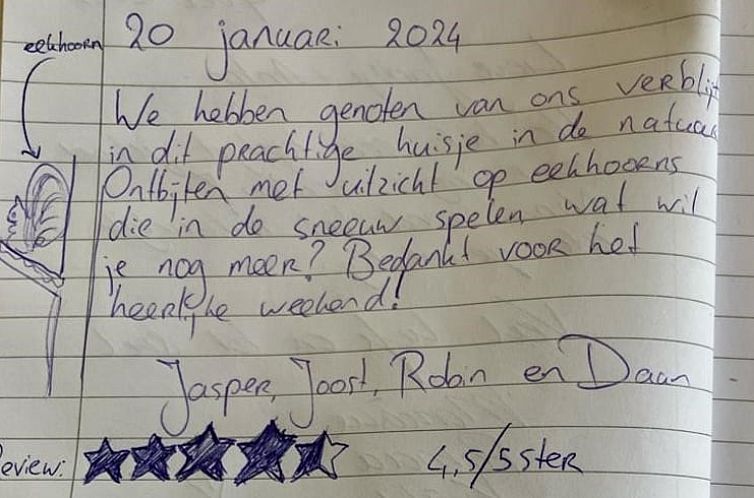 eekhoorn
20 januari 2024
We hebben genoten van ons verblijf
in dit prachtige huisje in de natuur
Ontbijten met uitzicht op eekhoorns
die in de sneeuw spelen, wat wil
je nog meer? Bedankt voor het
heerlijke weekend!
Jasper, Joost, Robin en Daan
Review: 4,5/5 ster